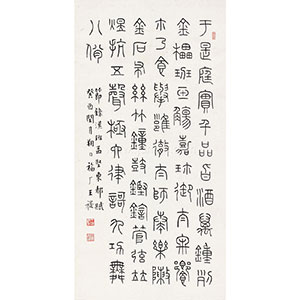 于是庭實千品旨酒萬鍾列
金罍班玉觴嘉珍御大牢饗
尒乃食舉雍徹太師奏樂陳
金石布絲竹鐘鼓鏗鍧管弦燁
煜抗五聲極六律歌九功舞
八佾
節錄漢班孟堅東都賦
癸酉閏月朔日福厂王禔